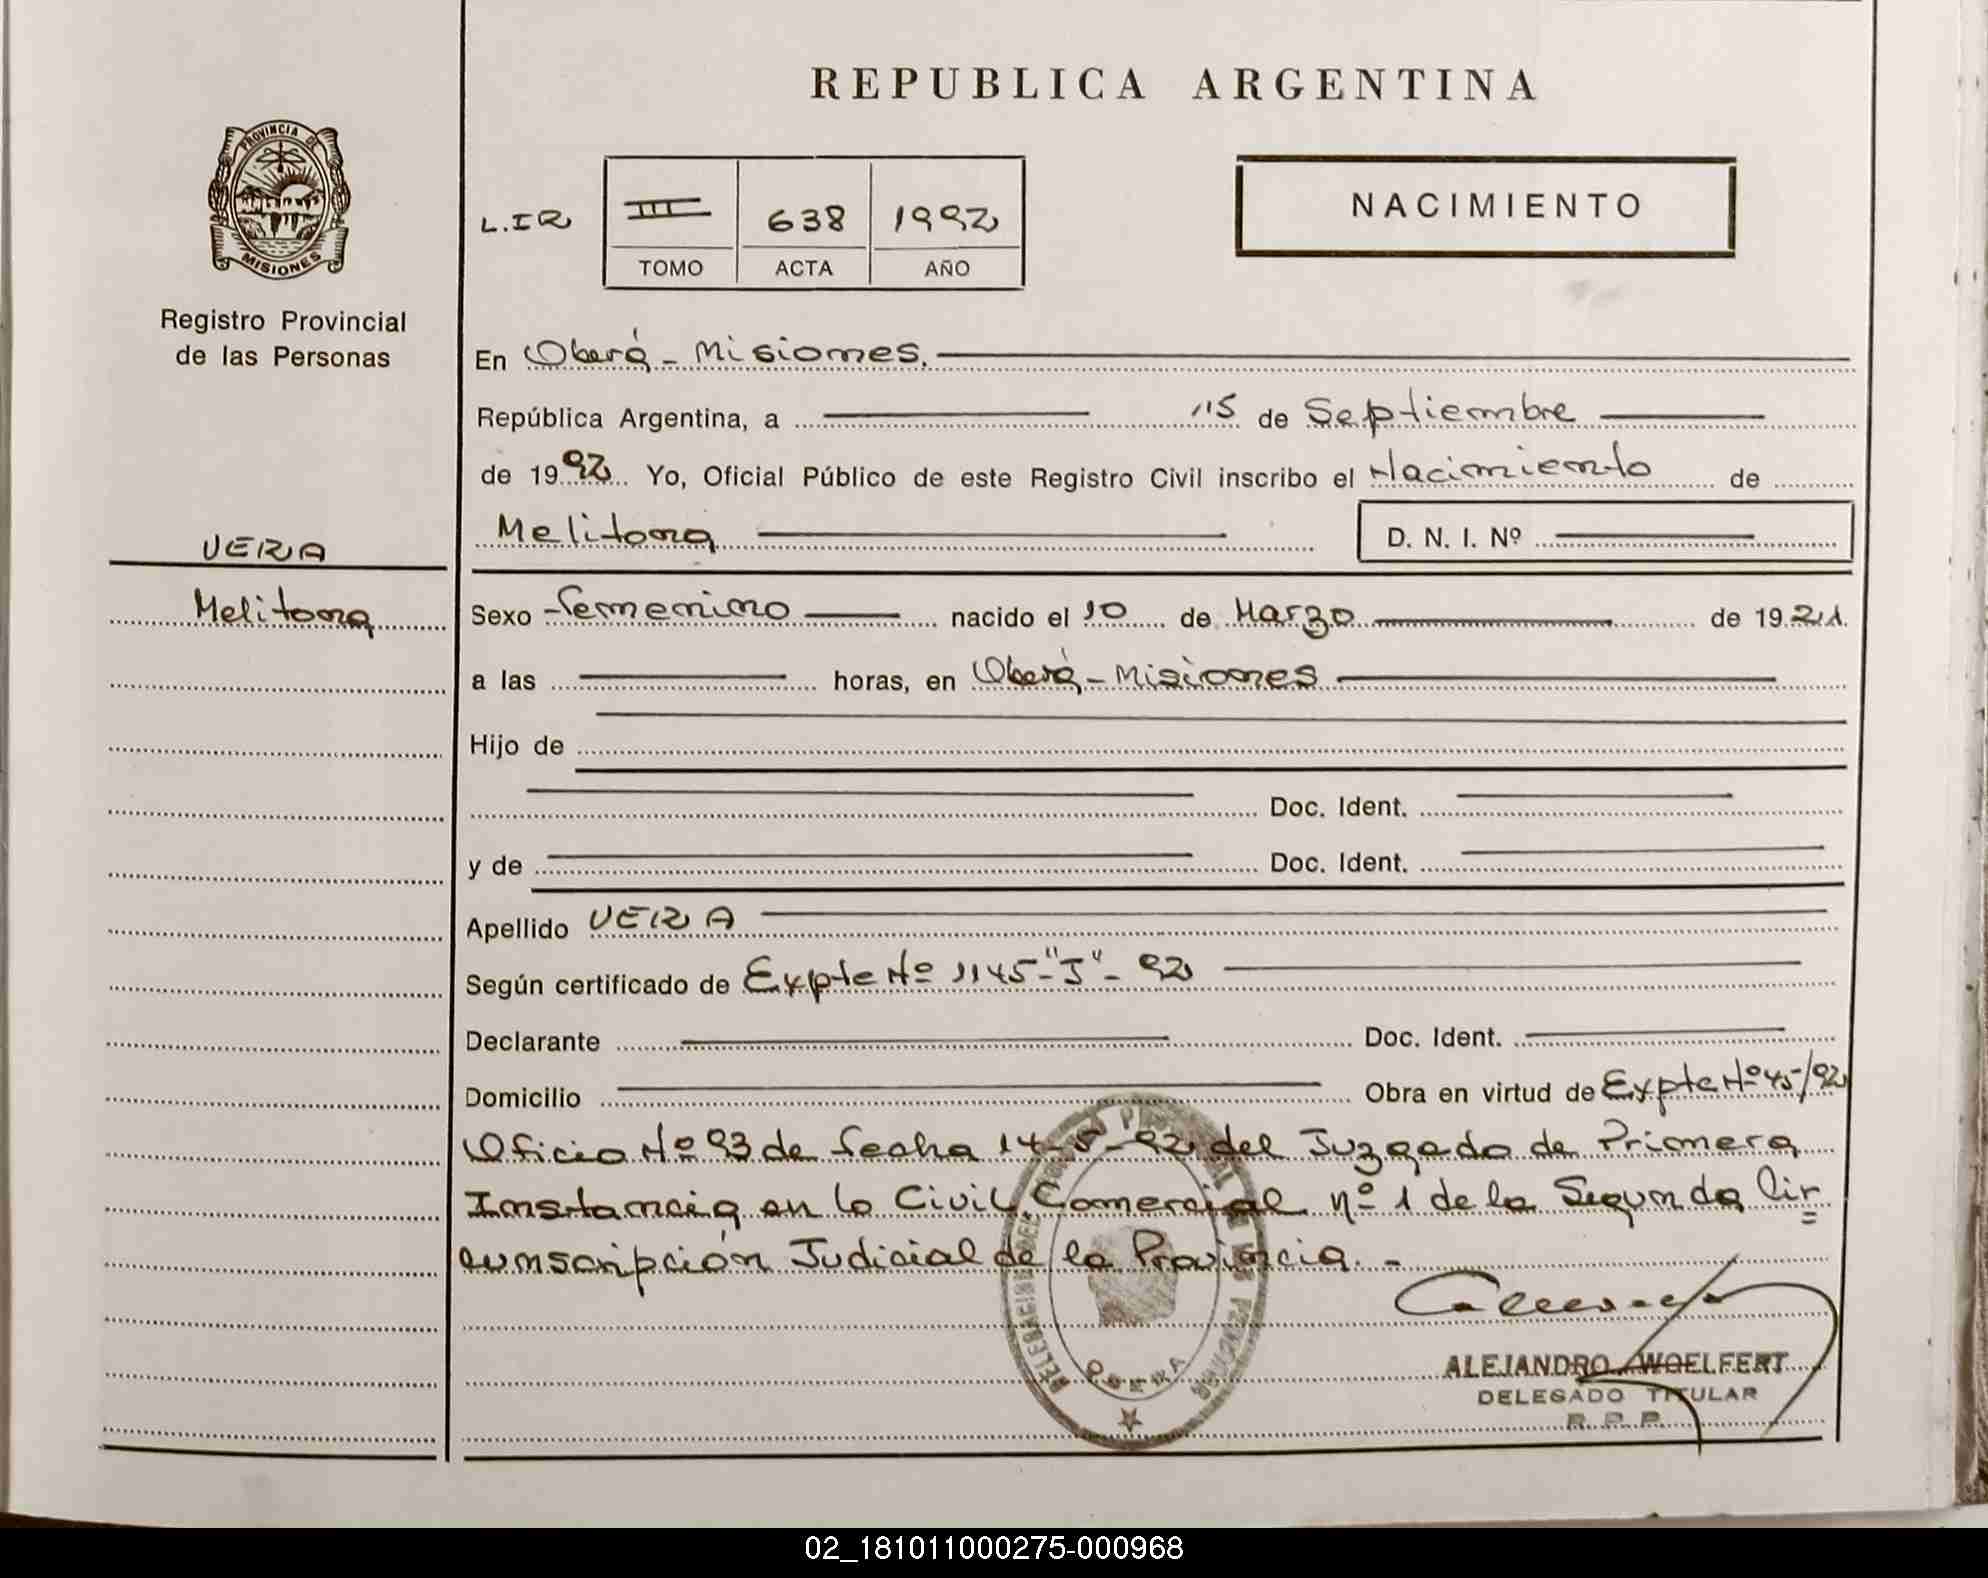 REPUBLICA ARGENTINA
PROVINCIA DE
MISIONES
Registro Provincial
de las Personas
L.IR
III 638 1992
TOMO ACTA AÑO
NACIMIENTO
En Oberá - Misiones.
República Argentina, a 15 de Septiembre
de 1992 Yo, Oficial Público de este Registro Civil inscribo el Nacimiento de
Melitona D. N. I. Nº
VERA
Melitona
Sexo femenino nacido el 10 de Marzo de 1921.
a las horas, en Oberá - Misiones
Hijo de
Doc. Ident.
y de Doc. Ident.
Apellido VERA
Según certificado de Expte Nº 1145-"J"- 92
Declarante Doc. Ident.
Domicilio Obra en virtud de Expte Nº 45/92
Oficio Nº 93 de fecha 14-5-92 del Juzgado de Primera
Instancia en lo Civil, Comercial nº 1 de la Segunda Cir=
cunscripción Judicial de la Provincia. -
OBERA
ALEJANDRO WOELFERT
DELEGADO TITULAR
R. P. P.
02_181011000275-000968